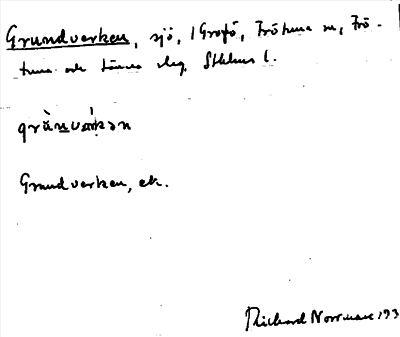 Grundverken, sjö, i Grovö, Frötuna sn, Frö-
tuna och Länna skg, Sthlms l.
grànvárkən
Grundverken, ek.
Richard Norrman 193